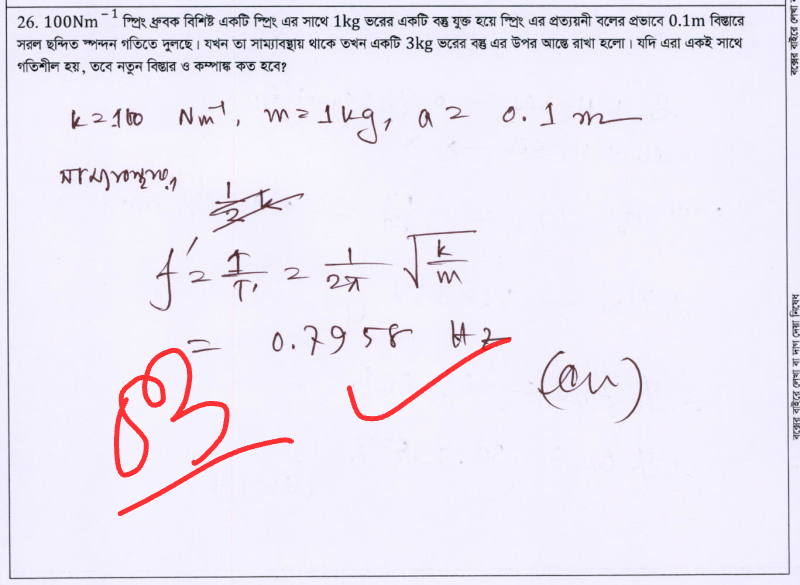 26. 100Nm⁻¹ স্প্রিং ধ্রুবক বিশিষ্ট একটি স্প্রিং এর সাথে 1kg ভরের একটি বস্তু যুক্ত হয়ে স্প্রিং এর প্রত্যয়নী বলের প্রভাবে 0.1m বিস্তারে
সরল ছন্দিত স্পন্দন গতিতে দুলছে। যখন তা সাম্যাবস্থায় থাকে তখন একটি 3kg ভরের বস্তু এর উপর আস্তে রাখা হলো। যদি এরা একই সাথে
গতিশীল হয়, তবে নতুন বিস্তার ও কম্পাঙ্ক কত হবে?
k = 100 Nm⁻¹, m = 1kg, a = 0.1 m
সাম্যাবস্থায়,
1/2 k
f' = 1/T' = 1/2π √(k/m)
= 0.7958 Hz
(Ans)
03
বক্সের বাইরে লেখা বা দাগ দেয়া নিষেধ